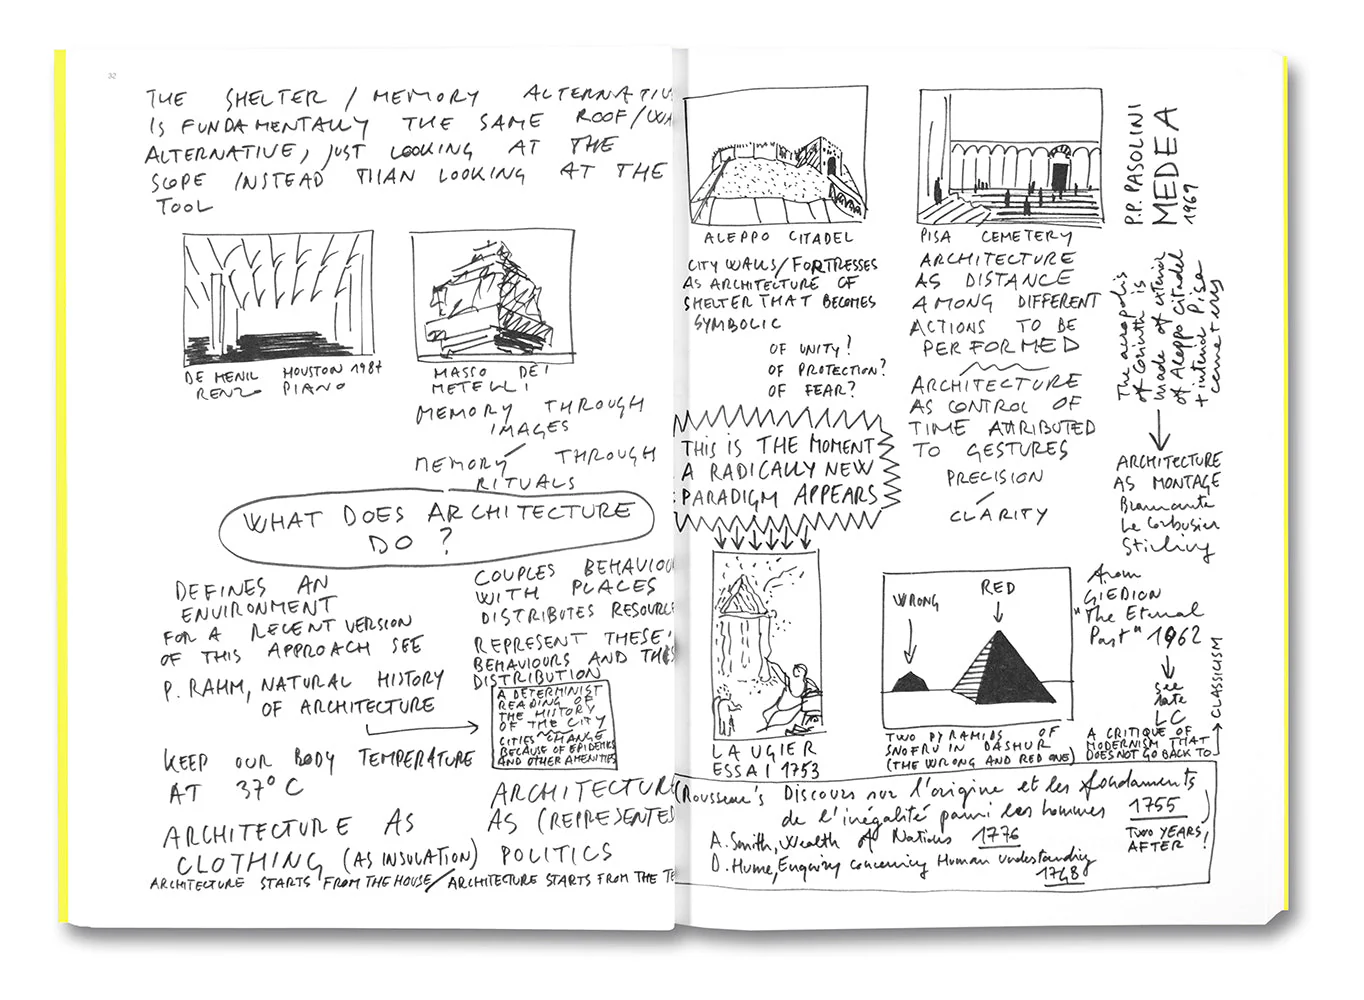 32
THE SHELTER / MEMORY ALTERNATIV
IS FUNDAMENTALLY THE SAME ROOF/WA
ALTERNATIVE, JUST LOOKING AT THE
SCOPE INSTEAD THAN LOOKING AT THE
TOOL
DE MENIL HOUSTON 1987
RENZO PIANO
MASSO DEI
METELLI
MEMORY THROUGH
IMAGES
/
MEMORY THROUGH
RITUALS
WHAT DOES ARCHITECTURE
DO?
DEFINES AN
ENVIRONMENT
FOR A RECENT VERSION
OF THIS APPROACH SEE
P. RAHM, NATURAL HISTORY
OF ARCHITECTURE
KEEP OUR BODY TEMPERATURE
AT 37° C
ARCHITECTURE AS
CLOTHING (AS INSULATION)
COUPLES BEHAVIOU
WITH PLACES
DISTRIBUTES RESOURCE
REPRESENT THESE
BEHAVIOURS AND THIS
DISTRIBUTION
A DETERMINIST
READING OF
THE HISTORY
OF THE CITY
CITIES CHANGE
BECAUSE OF EPIDEMICS
AND OTHER AMENITIES
ARCHITECTURE
AS (REPRESENTED
POLITICS
ARCHITECTURE STARTS FROM THE HOUSE / ARCHITECTURE STARTS FROM THE TE
ALEPPO CITADEL
CITY WALLS/FORTRESSES
AS ARCHITECTURE OF
SHELTER THAT BECOMES
SYMBOLIC
OF UNITY?
OF PROTECTION?
OF FEAR?
THIS IS THE MOMENT
A RADICALLY NEW
PARADIGM APPEARS
LAUGIER
ESSAI 1753
PISA CEMETERY
ARCHITECTURE
AS DISTANCE
AMONG DIFFERENT
ACTIONS TO BE
PERFORMED
ARCHITECTURE
AS CONTROL OF
TIME ATTRIBUTED
TO GESTURES
PRECISION
/
CLARITY
WRONG
RED
TWO PYRAMIDS OF
SNOFRU IN DASHUR
(THE WRONG AND RED ONE)
P.P. PASOLINI
MEDEA
1969
The acropolis
of Corinth is
made of exterior
of Aleppo Citadel
+ interior Pisa
cemetery
ARCHITECTURE
AS MONTAGE
Bramante
Le Corbusier
Stirling
from
GIEDION
"The Eternal
Past" 1962
see
late
LC
A CRITIQUE OF
MODERNISM THAT
DOES NOT GO BACK TO
CLASSICISM
(Rousseau's Discours sur l'origine et les fondaments
de l'inégalité parmi les hommes 1755
A. Smith, Wealth of Nations 1776
D. Hume, Enquiry concerning Human Understanding
1748
TWO YEARS
AFTER!